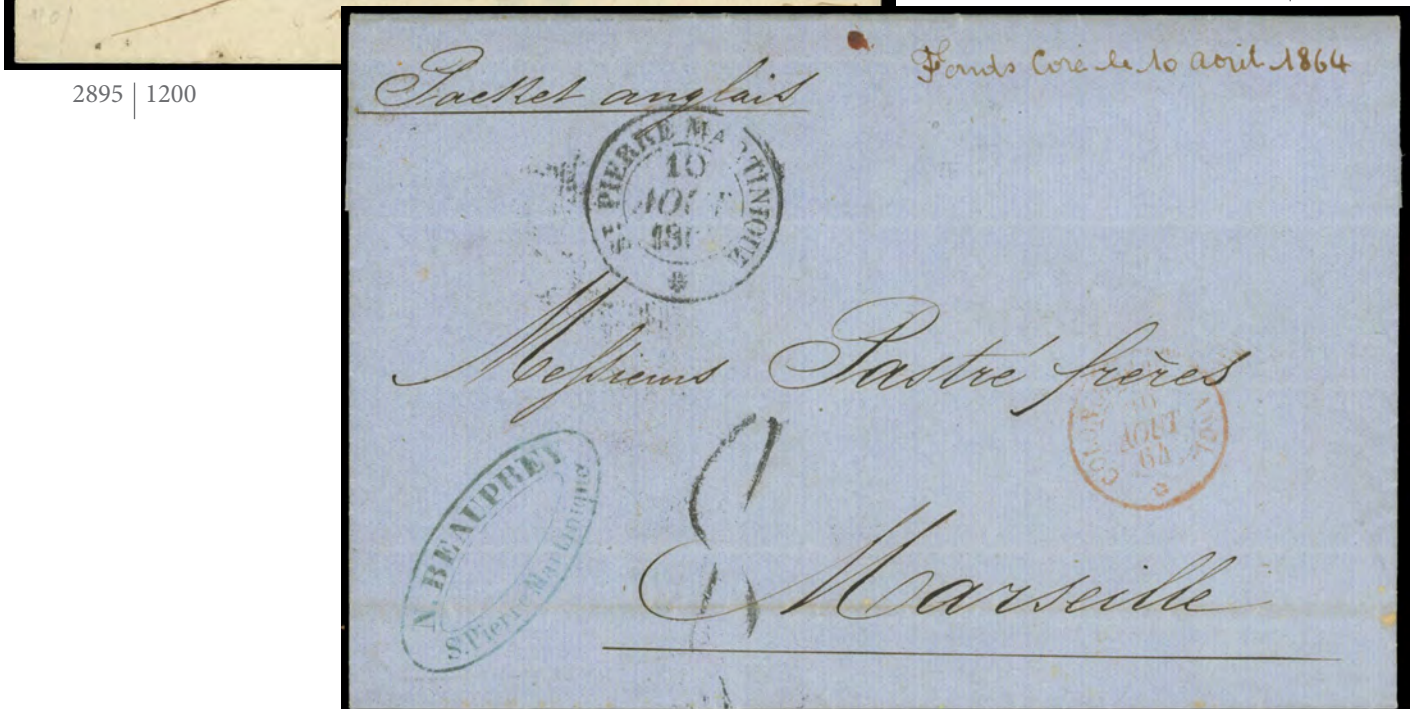 2895 | 1200
Packet anglais
Fonds Coré le 10 août 1864
ST. PIERRE MARTINIQUE
10
AOUT
Messieurs Pastré frères
10
AOUT
64
8
N. BEAUPREY
St. Pierre Martinique
Marseille